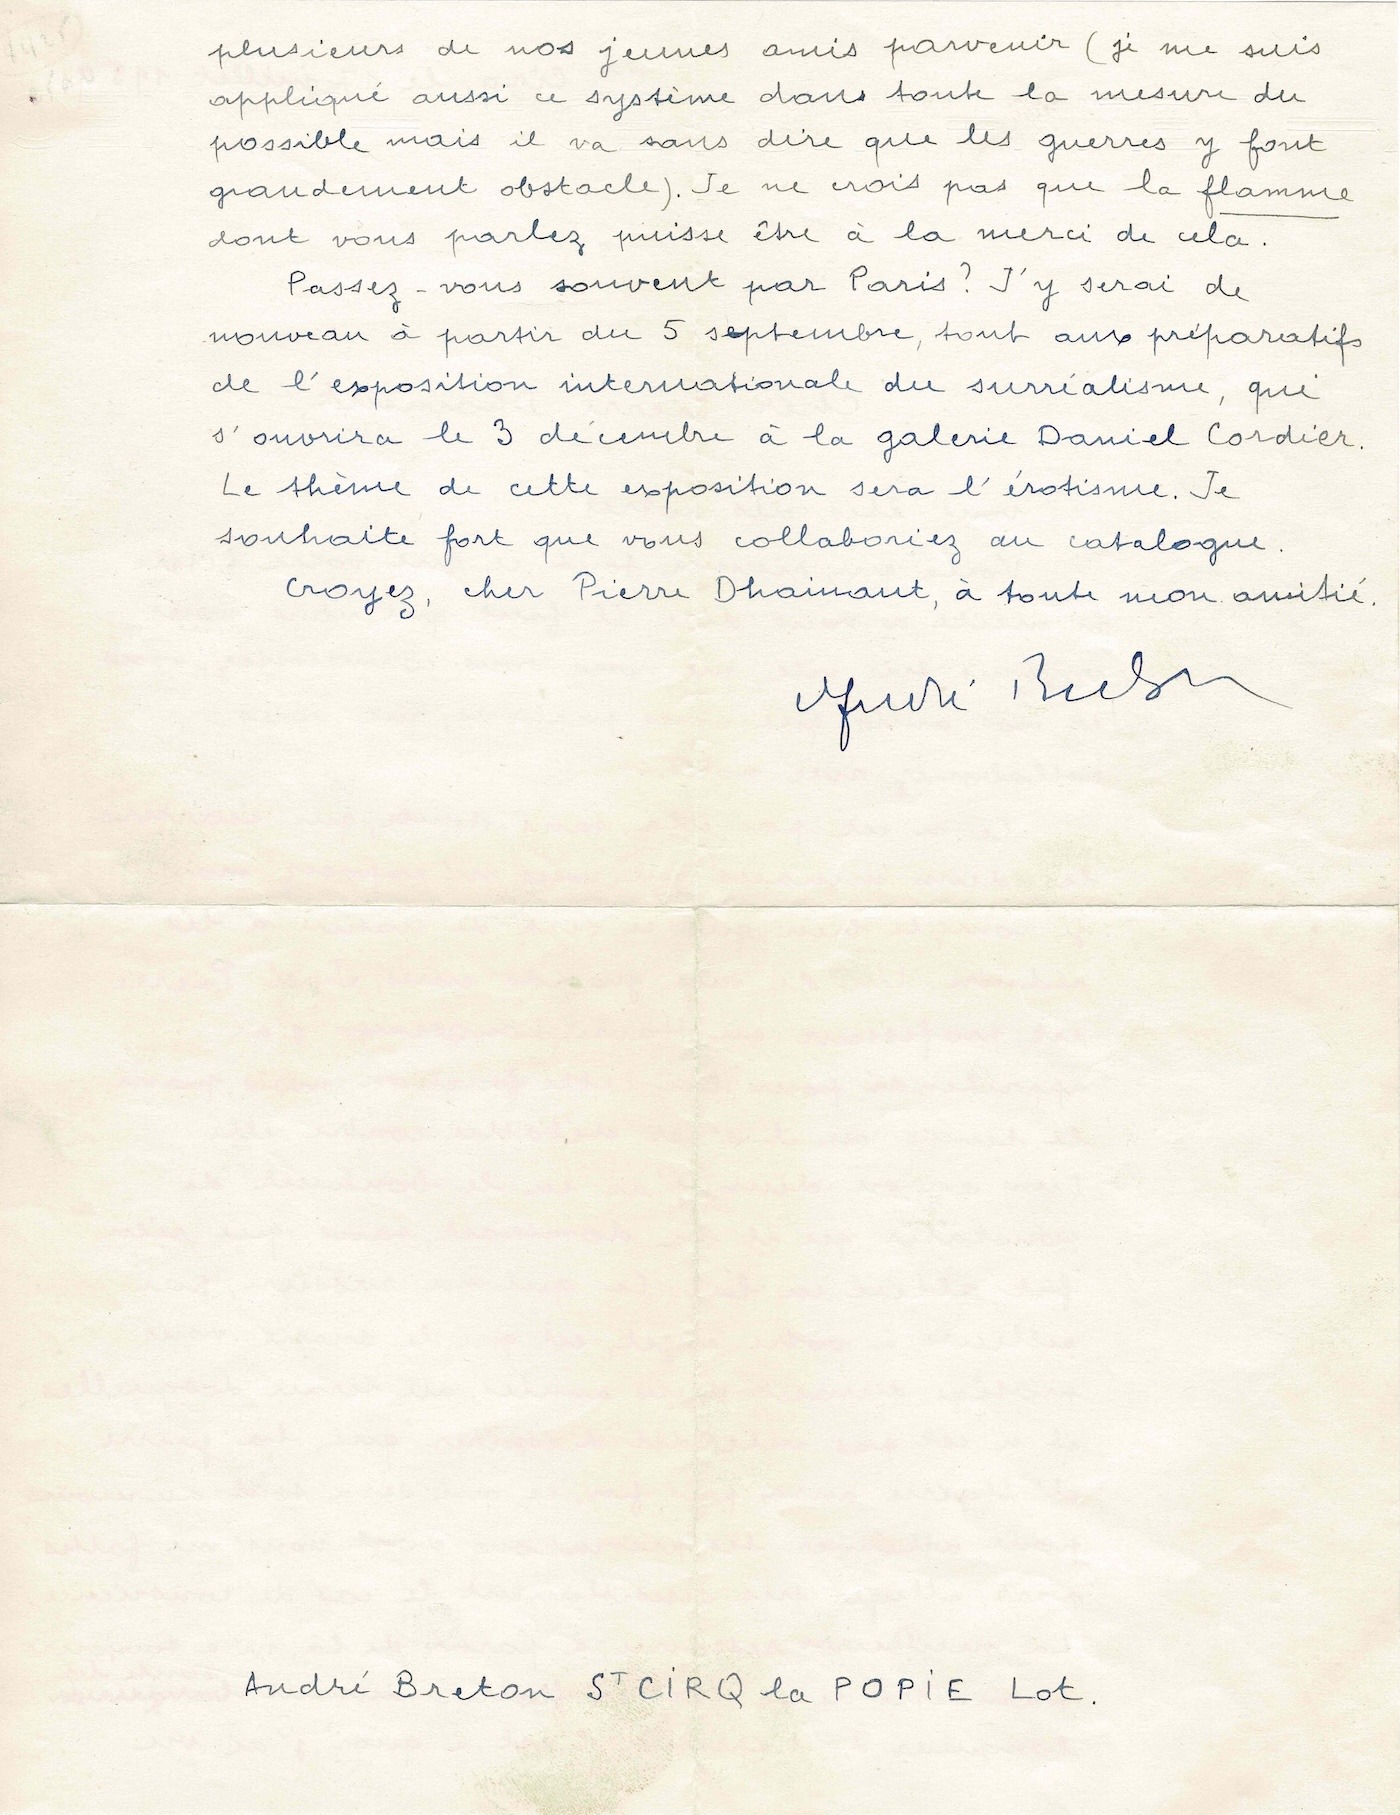 plusieurs de nos jeunes amis parvenir (je me suis
appliqué aussi ce système dans toute la mesure du
possible mais il va sans dire que les guerres y font
grandement obstacle). Je ne crois pas que la flamme
dont vous parlez puisse être à la merci de cela.
Passez-vous souvent par Paris? J'y serai de
nouveau à partir du 5 septembre, tout aux préparatifs
de l'exposition internationale du surréalisme, qui
s'ouvrira le 3 décembre à la galerie Daniel Cordier.
Le thème de cette exposition sera l'érotisme. Je
souhaite fort que vous collaboriez au catalogue.
Croyez, cher Pierre Dhainaut, à toute mon amitié.
André Breton
André Breton ST CIRQ la POPIE Lot.